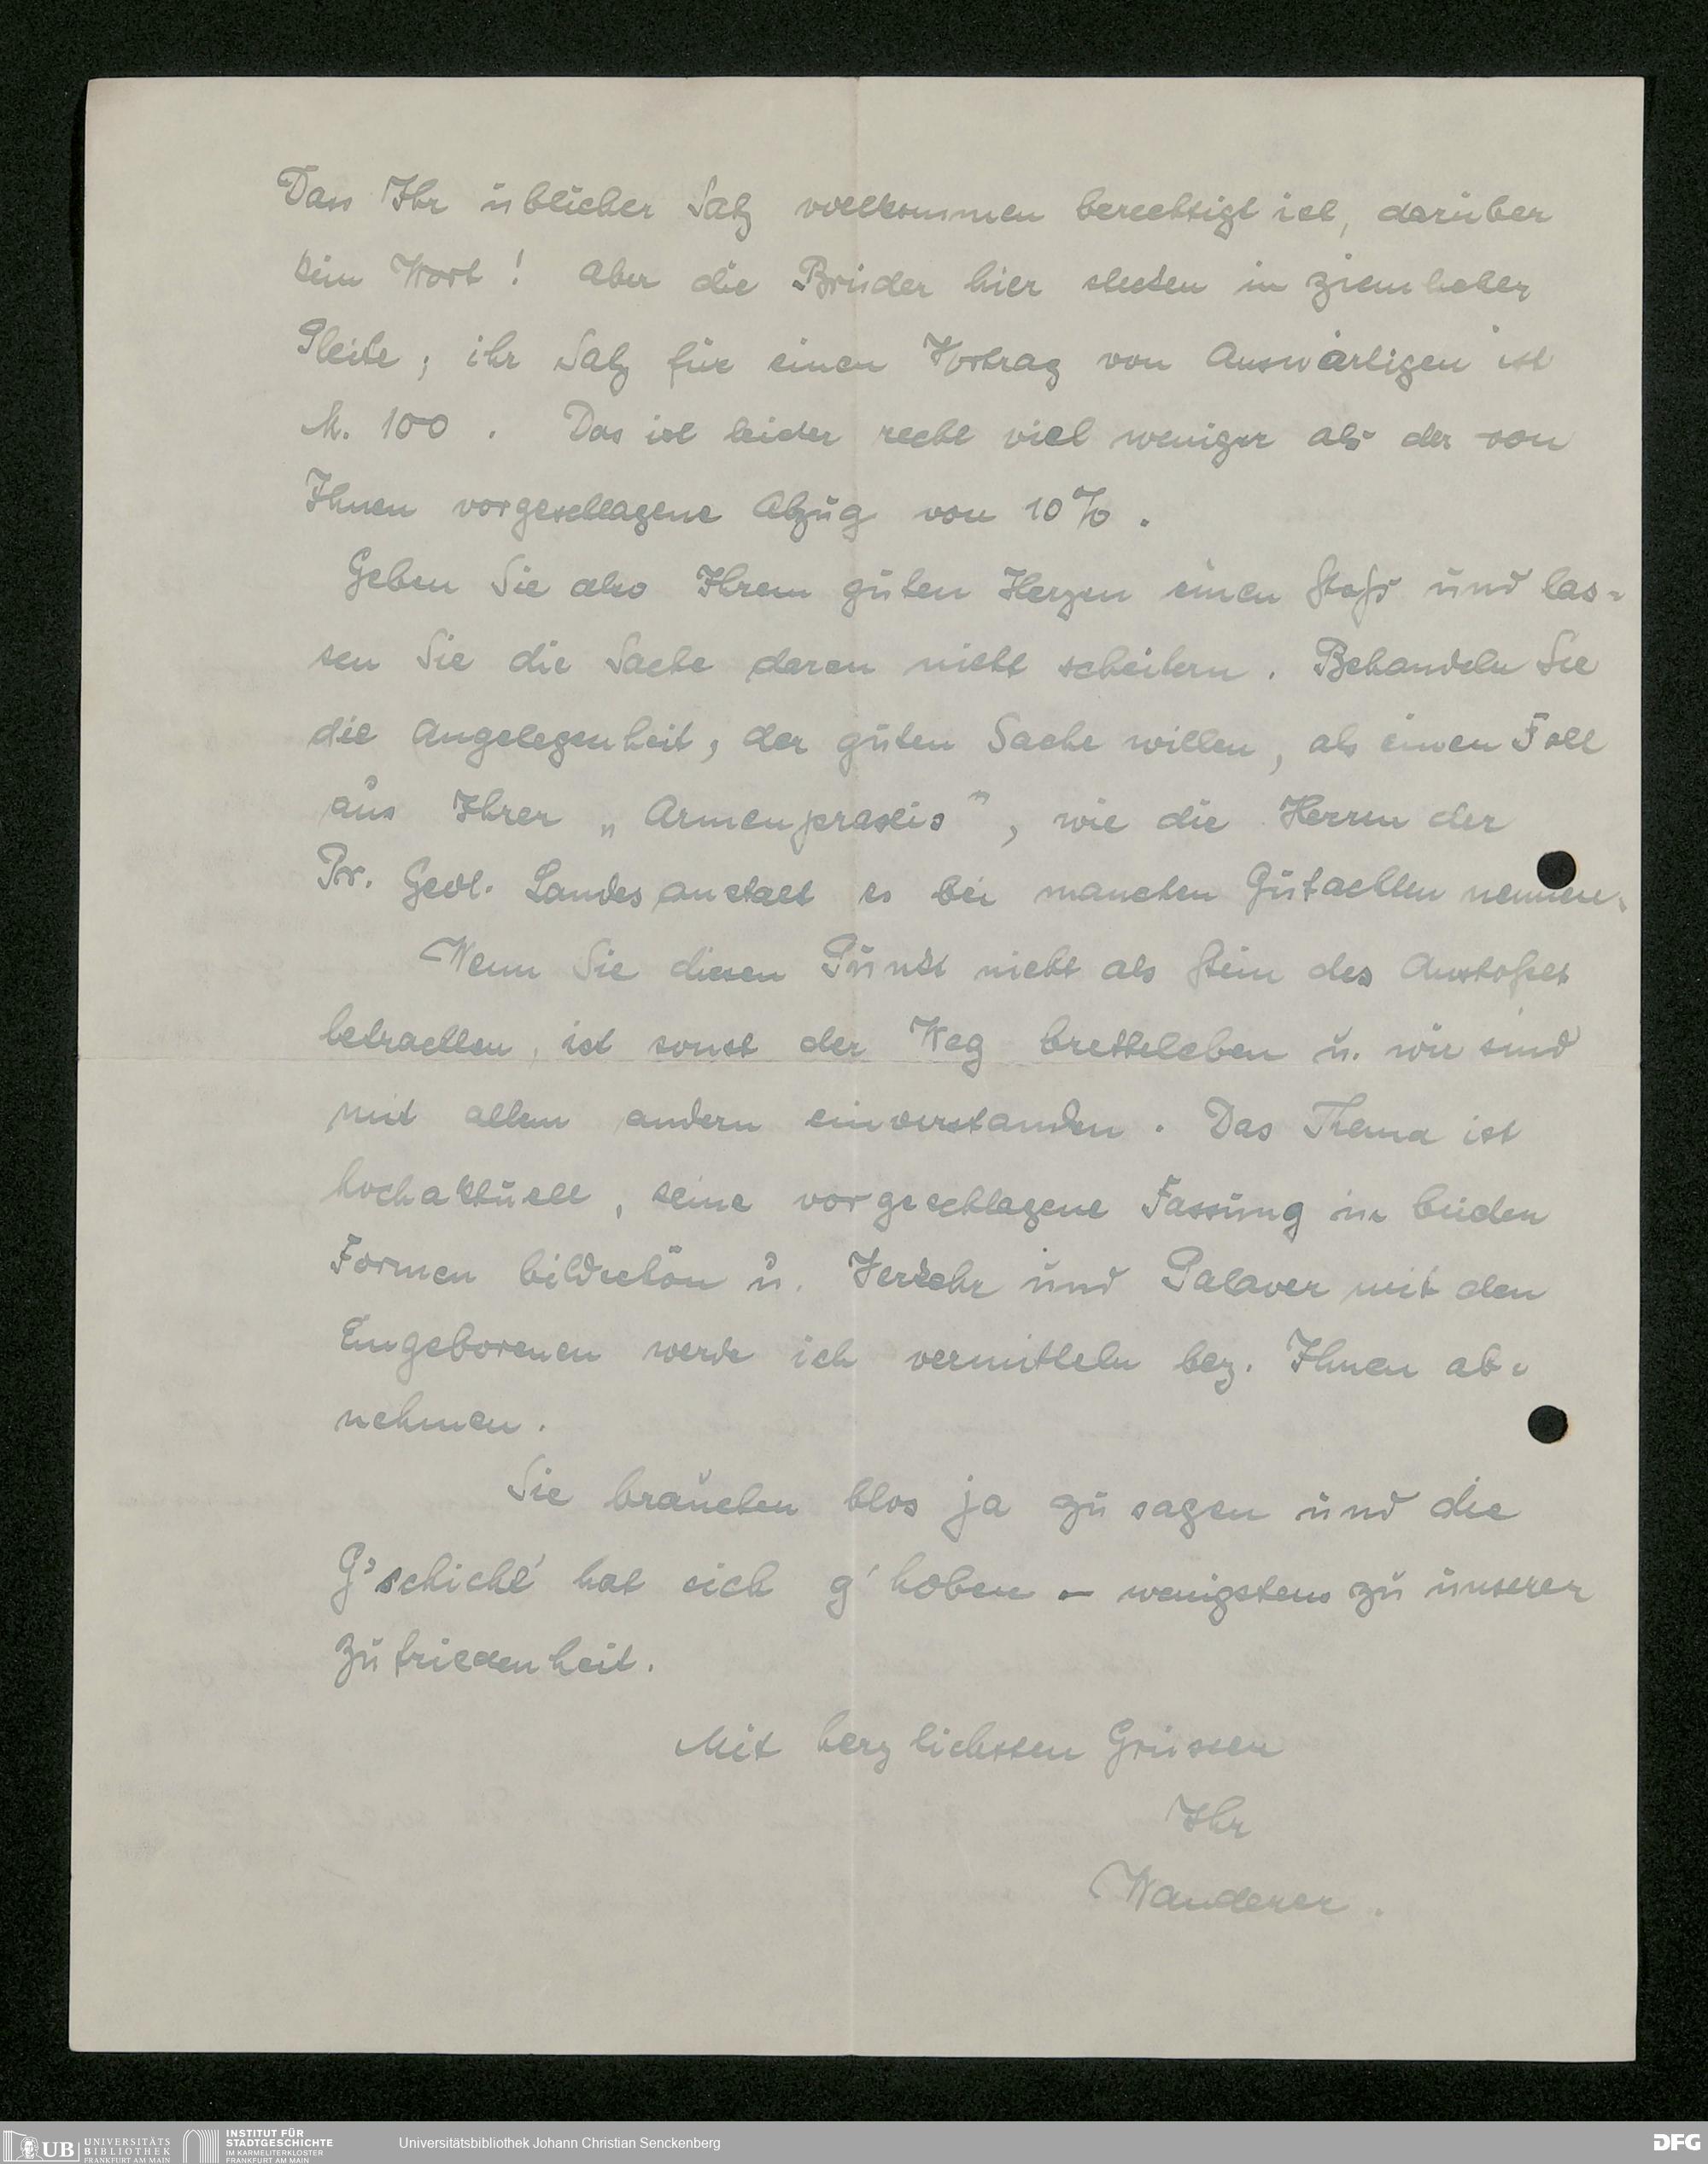 Dass Ihr üblicher Satz vollkommen berechtigt ist, darüber
kein Wort! Aber die Brüder hier stecken in ziemlicher
Pleite; ihr Satz für einen Vortrag von Auswärtigen ist
M. 100. Das ist leider recht viel weniger als der von
Ihnen vorgeschlagene Abzug von 10%.
Geben Sie also Ihrem guten Herzen einen Stoß und las-
sen Sie die Sache daran nicht scheitern. Behandeln Sie
die Angelegenheit, der guten Sache willen, als einen Fall
aus Ihrer „Armenpraxis", wie die Herren der
Pr. Geol. Landesanstalt es bei manchen Gutachten nennen.
Wenn Sie diesen Punkt nicht als Stein des Anstoßes
betrachten, ist sonst der Weg bretteleben u. wir sind
mit allem andern einverstanden. Das Thema ist
hochaktuell, seine vorgeschlagene Fassung in beiden
Formen bildschön u. Verkehr und Palaver mit den
Eingeborenen werde ich vermitteln bez. Ihnen ab-
nehmen.
Sie brauchen blos ja zu sagen und die
G'schicht' hat sich g'hoben – wenigstens zu unserer
Zufriedenheit.
Mit herzlichsten Grüssen
Ihr
Wanderer.
UB UNIVERSITÄTS
BIBLIOTHEK
FRANKFURT AM MAIN
INSTITUT FÜR
STADTGESCHICHTE
IM KARMELITERKLOSTER
FRANKFURT AM MAIN
Universitätsbibliothek Johann Christian Senckenberg
DFG